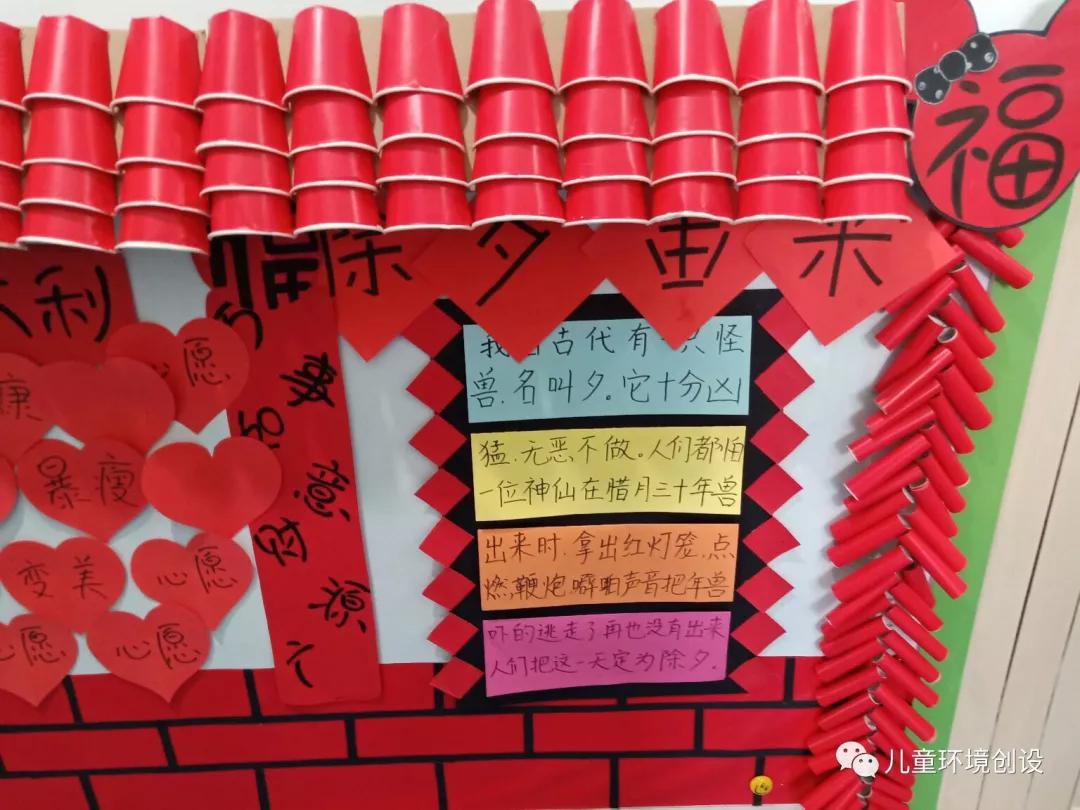 福
除夕由来
利
我国古代有一只怪
兽.名叫夕。它十分凶
猛.无恶不做。人们都怕
一位神仙在腊月三十年兽
出来时.拿出红灯笼.点
燃鞭炮.噼啪声音把年兽
吓的逃走了再也没有出来
人们把这一天定为除夕.
心愿
康
暴瘦
变美
心愿
心愿
心愿
意
财源广
儿童环境创设